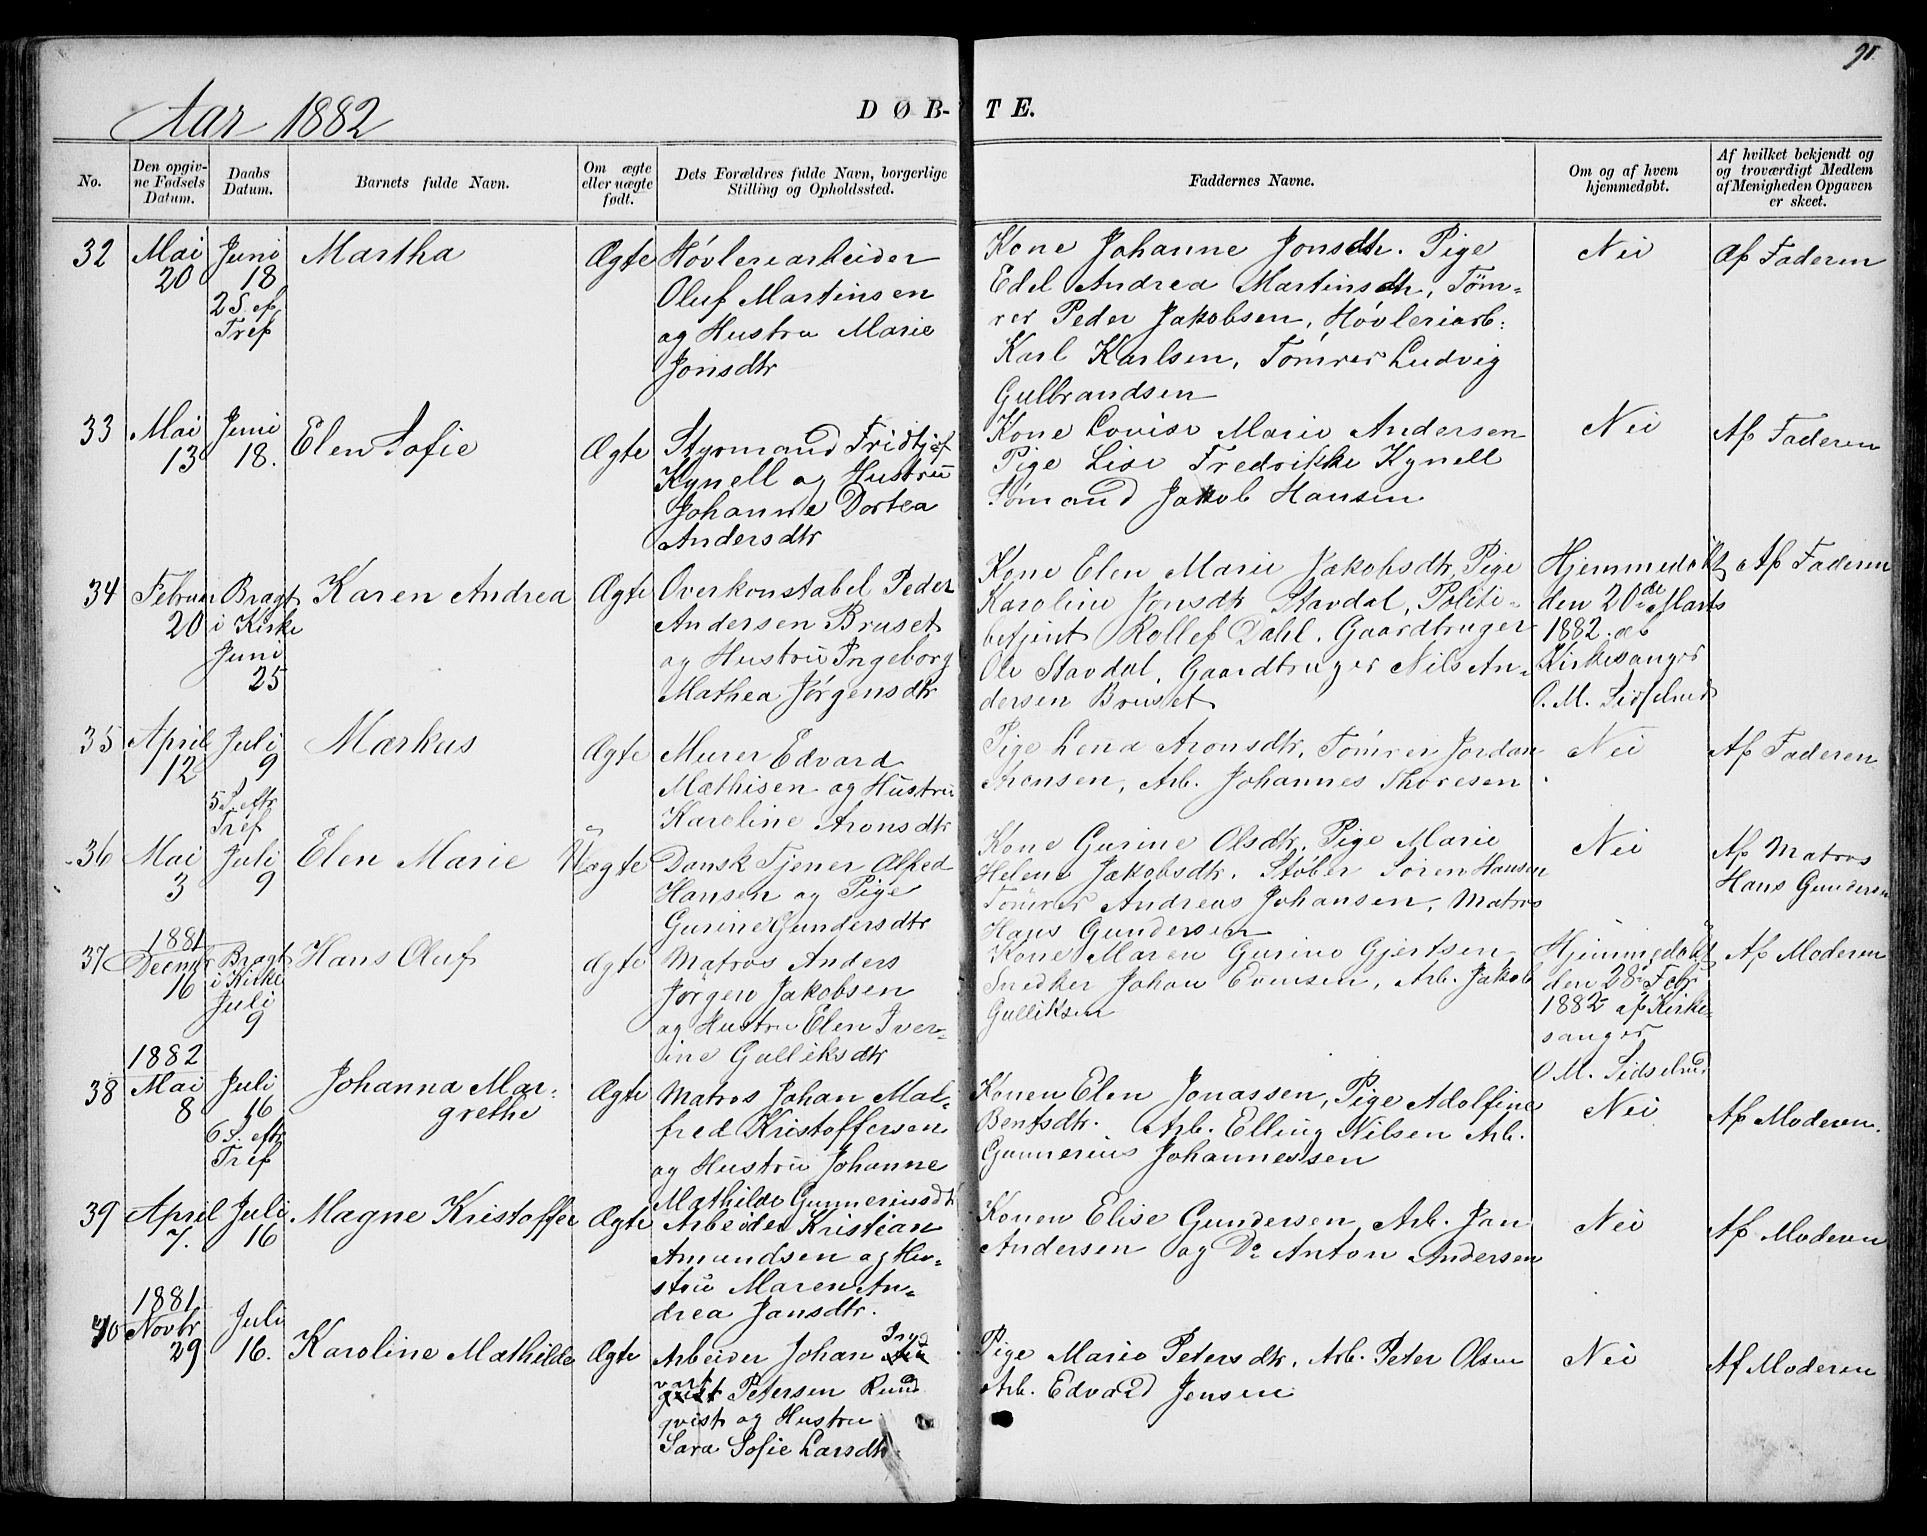 91.
Aar 1882
DØB-TE.
No.
Den opgiv-
ne Fødsels
Datum.
Daabs
Datum.
Barnets fulde Navn.
Om ægte
eller uægte
født.
Dets Forældres fulde Navn, borgerlige
Stilling og Opholdssted.
Faddernes Navne.
Om og af hvem
hjemmedøbt.
Af hvilket bekjendt og
og troværdigt Medlem
af Menigheden Opgaven
er skeet.
32
Mai
20
Juni
18
2 S. ef.
Tref
Martha
Ægte
Høvleriarbeider
Oluf Martinsen
og Hustru Marie
Jonsdtr
Kone Johanne Jonsdtr. Pige
Edel Andrea Martinsdtr, Tøm-
rer Peder Jakobsen, Høvleriarb:
Karl Karlsen, Tømrer Ludvig
Gulbrandsen
Nei
Af Faderen
33
Mai
13
Juni
18.
Elen Sofie
Ægte
Styrmand Fridtjof
Kynell og Hustru
Johanne Dortea
Andersdtr
Kone Lovise Marie Andersen
Pige Lise Fredrikke Kynell
Sømand Jakob Hansen
Nei
Af Faderen
34
Februar
20
Bragt
i Kirke
Juni
25
Karen Andrea
Ægte
Overkonstabel Peder
Andersen Bruset
og Hustru Ingeborg
Mathea Jørgensdtr
Kone Elen Marie Jakobsdtr, Pige
Karoline Jonsdtr Stavdal, Politi-
betjent Rollef Dahl. Gaardbruger
Ole Stavdal, Gaardbruger Nils An-
dersen Bruset
Hjemmedøbt
den 20de Marts
1882 af
Kirkesanger
O. M. Sidselrud
Af Faderen
35
April
12
Juli
9
5 S. eftr
Tref
Markus
Ægte
Murer Edvard
Mathisen og Hustru
Karoline Aronsdtr
Pige Lena Aronsdtr, Tømrer Jordan
Steensen, Arb. Johannes Thoresen
Nei
Af Faderen
36
Mai
3
Juli
9
Elen Marie
Uægte
Dansk Tjener Alfred
Hansen og Pige
Gurine Gundersdtr
Kone Gurine Olsdtr, Pige Marie
Helene Jakobsdtr. Støber Søren Hansen
Tømrer Andreas Johansen, Matros
Hans Gundersen
Nei
Af Matros
Hans Gundersen
37
1881
Decmbr
16
Bragt
i Kirke
Juli
9
Hans Oluf
Ægte
Matros Anders
Jørgen Jakobsen
og Hustru Elen Iver-
ine Gulliksdtr
Kone Maren Gurine Gjertsen
Snedker Johan Evensen, Arb. Jakob
Gulliksen
Hjemmedøbt
den 28 Febr
1882 af Kirke-
sanger
O. M. Sidselrud
Af Moderen
38
1882
Mai
8
Juli
16
6 S. eftr
Tref
Johanna Mar-
grethe
Ægte
Matros Johan Mal-
fred Kristoffersen
og Hustru Johanne
Mathilde Gunneriusdtr
Konen Elen Jonassen, Pige Adolfine
Bentsdtr. Arb. Elling Nilsen Arb.
Gunnerius Johannessen
Nei
Af Moderen.
39
April
7.
Juli
16
Magne Kristoffer
Ægte
Arbeider Kristian
Amundsen og Hu-
stru Maren An-
drea Jansdtr.
Konen Elise Gundersen, Arb. Jan
Andersen og Do Anton Andersen
Nei
Af Moderen
40
1881
Novbr
29
Juli
16.
Karoline Mathilde
Ægte
Arbeider Johan Ing
vart Petersen Rund
qvist og Hustru
Sara Sofie Larsdtr
Pige Marie Petersdtr, Arb. Peter Olsen
Arb. Edvard Jensen
Nei
Af Moderen